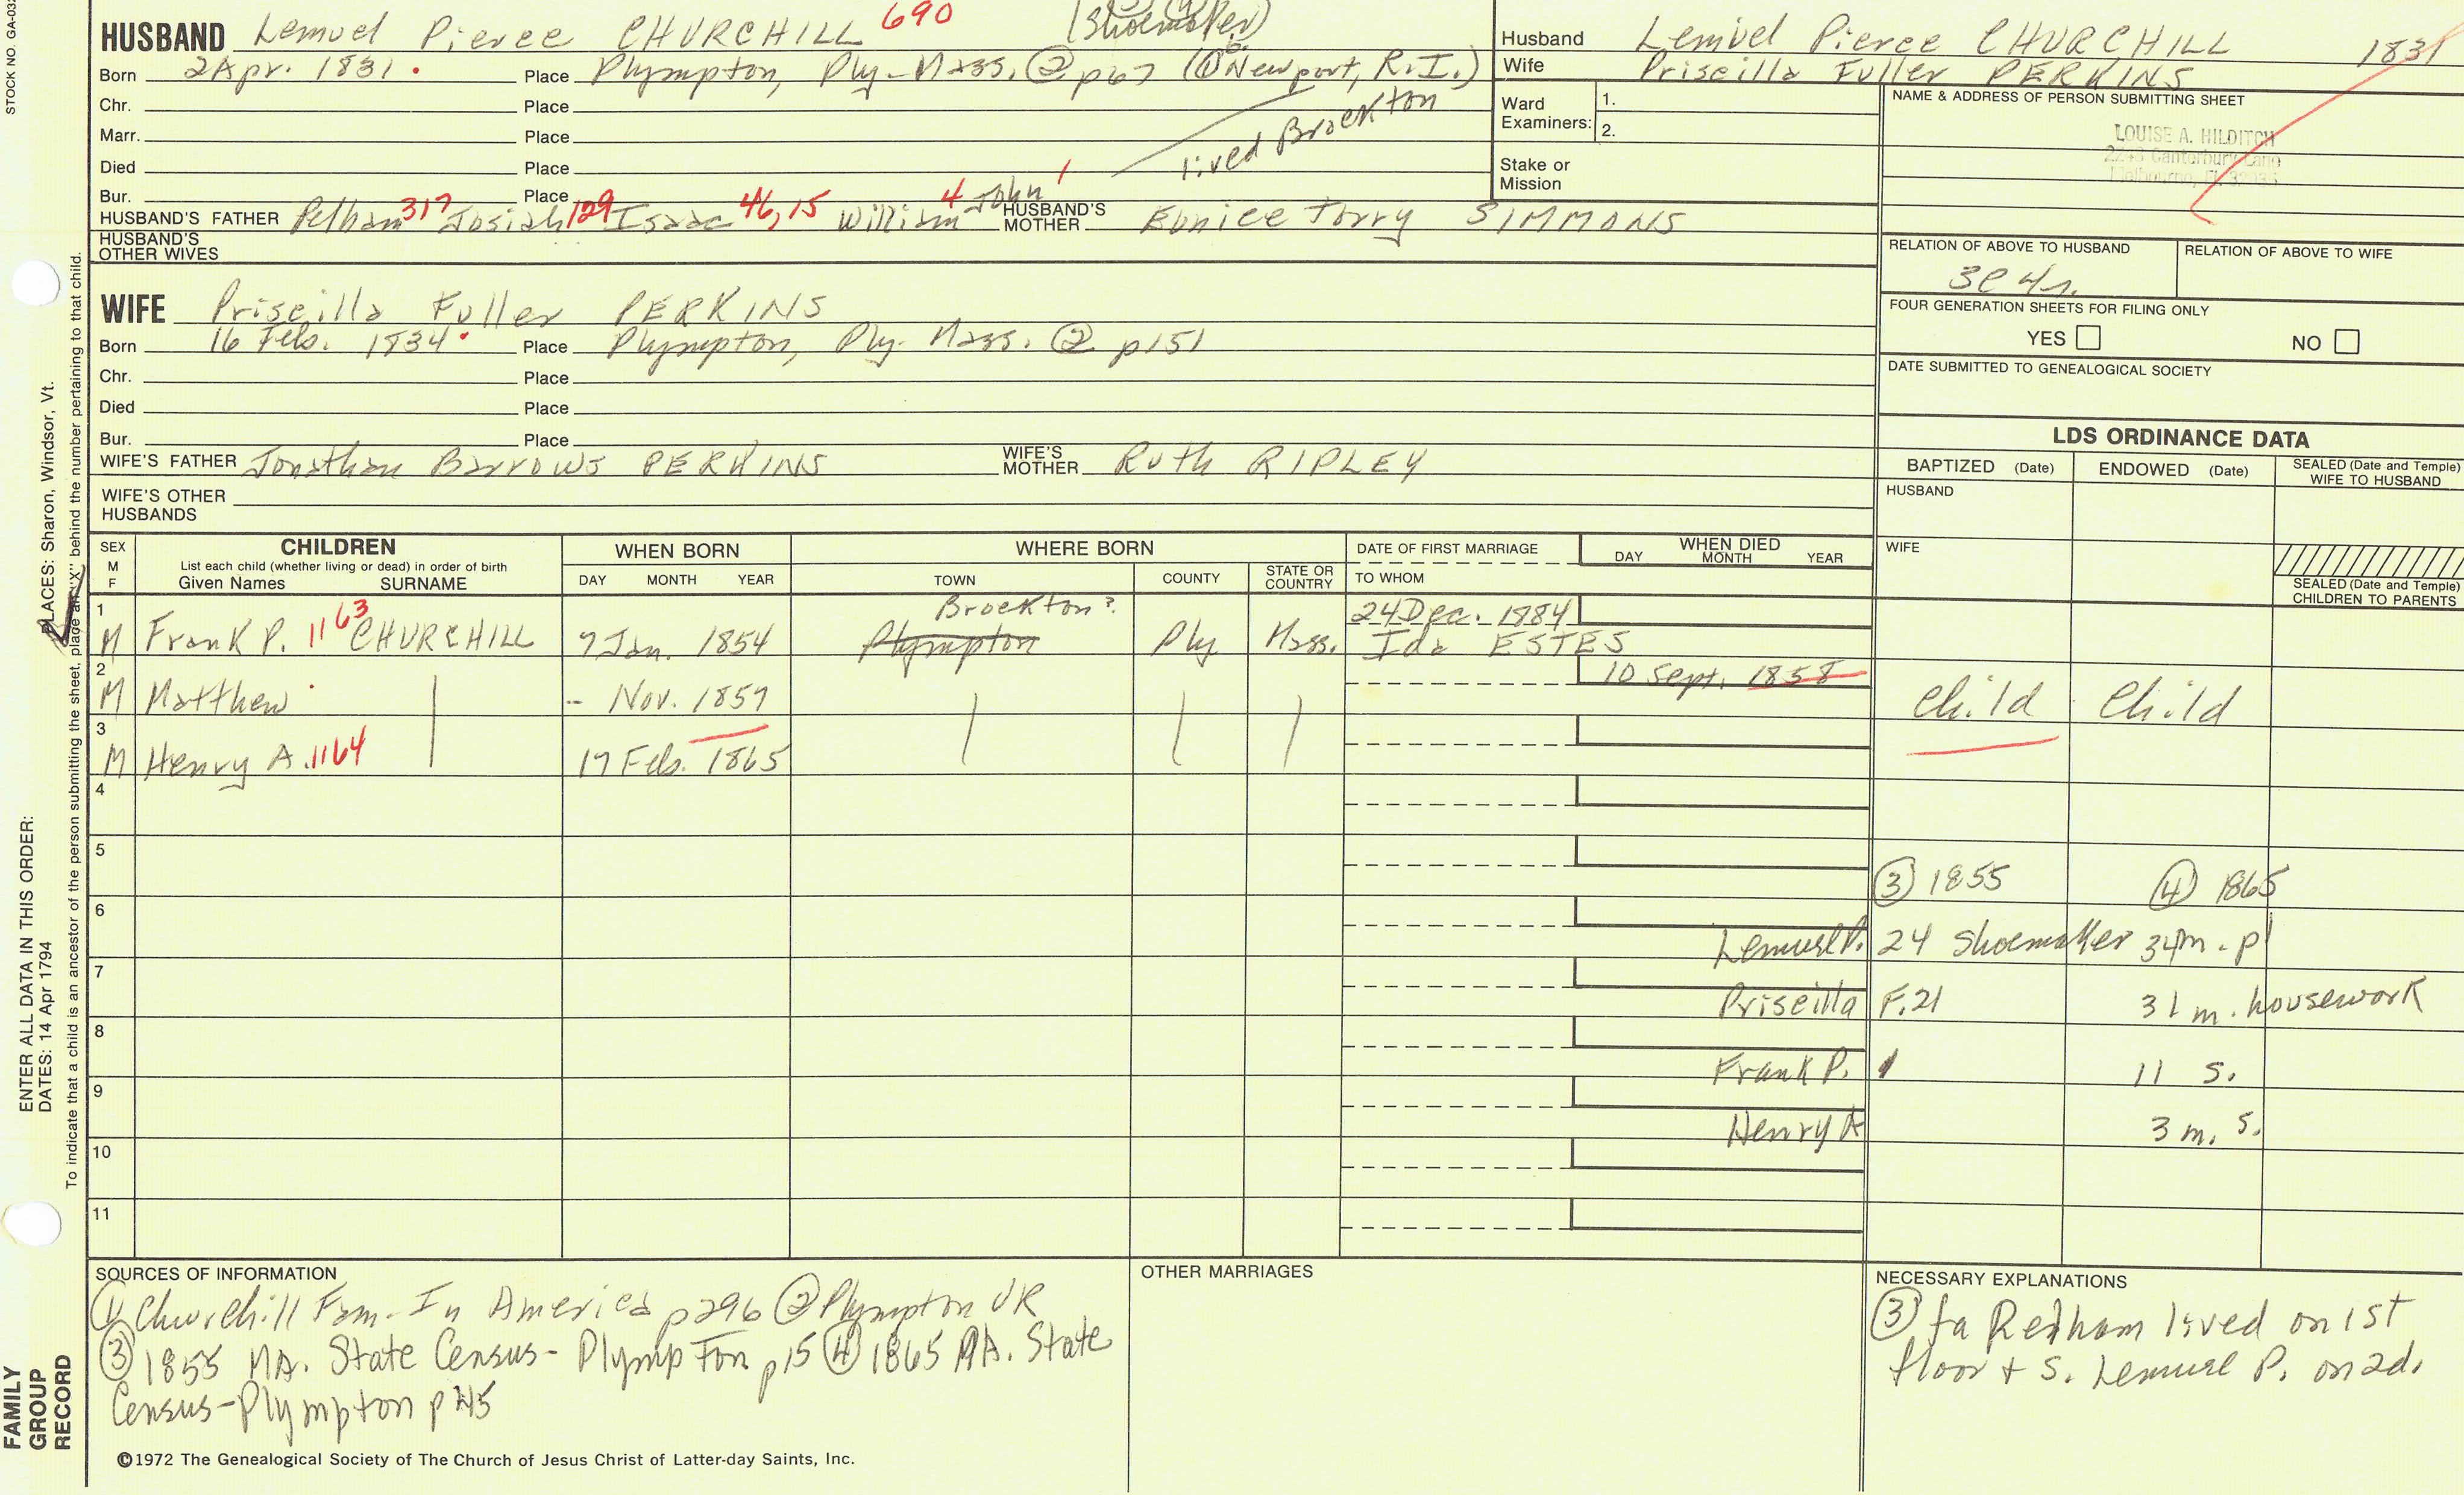 STOCK NO. GA-032
HUSBAND Lemuel Pierce CHURCHILL 690 (Shoemaker)
Born 2 Apr. 1831. Place Plympton, Ply-Mass. ② p67 (① Newport, R.I.)
Chr. Place
Marr. Place
Died Place lived Brockton
Bur. Place
HUSBAND'S FATHER Pelham 317 Josiah 129 Isaac 46, 15 William 4 John 1 HUSBAND'S MOTHER Eunice Torry SIMMONS
HUSBAND'S OTHER WIVES
WIFE Priscilla Fuller PERKINS
Born 16 Feb. 1834. Place Plympton, Ply. Mass. ② p151
Chr. Place
Died Place
Bur. Place
WIFE'S FATHER Jonathan Barrows PERKINS WIFE'S MOTHER Ruth RIPLEY
WIFE'S OTHER HUSBANDS
Husband Lemuel Pierce CHURCHILL 1831
Wife Priscilla Fuller PERKINS
Ward Examiners: 1.
2.
Stake or Mission
NAME & ADDRESS OF PERSON SUBMITTING SHEET
LOUISE A. HILDITCH
Canterbury Lane
Melbourne, FL
RELATION OF ABOVE TO HUSBAND RELATION OF ABOVE TO WIFE
3C 4r.
FOUR GENERATION SHEETS FOR FILING ONLY
YES NO
DATE SUBMITTED TO GENEALOGICAL SOCIETY
LDS ORDINANCE DATA
BAPTIZED (Date) ENDOWED (Date) SEALED (Date and Temple) WIFE TO HUSBAND
HUSBAND
WIFE
SEALED (Date and Temple) CHILDREN TO PARENTS
SEX M F
CHILDREN
List each child (whether living or dead) in order of birth
Given Names SURNAME
WHEN BORN
DAY MONTH YEAR
WHERE BORN
TOWN COUNTY STATE OR COUNTRY
DATE OF FIRST MARRIAGE
TO WHOM
WHEN DIED
DAY MONTH YEAR
1 Brockton? 24 Dec. 1884
M Frank P. 1163 CHURCHILL 7 Jan. 1854 Plympton Ply Mass. Ida ESTES
2 10 Sept. 1858
M Matthew - Nov. 1857 Child Child
3
M Henry A. 1164 17 Feb. 1865
4
5
③ 1855 ④ 1865
6
Lemuel P. 24 Shoemaker 34 m. pl
7
Priscilla F. 21 31 m. housework
8
Frank P. 1 11 S.
9
Henry A 3 m. S.
10
11
SOURCES OF INFORMATION
① Churchill Fam. In America p296 ② Plympton VR
③ 1855 MA. State Census - Plympton p15 ④ 1865 MA. State
Census-Plympton p
OTHER MARRIAGES
NECESSARY EXPLANATIONS
③ fa Pelham lived on 1st
floor + S. Lemuel P. on 2d.
©1972 The Genealogical Society of The Church of Jesus Christ of Latter-day Saints, Inc.
FAMILY GROUP RECORD
ENTER ALL DATA IN THIS ORDER:
DATES: 14 Apr 1794
PLACES: Sharon, Windsor, Vt.
To indicate that a child is an ancestor of the person submitting the sheet, place an "X" behind the number pertaining to that child.